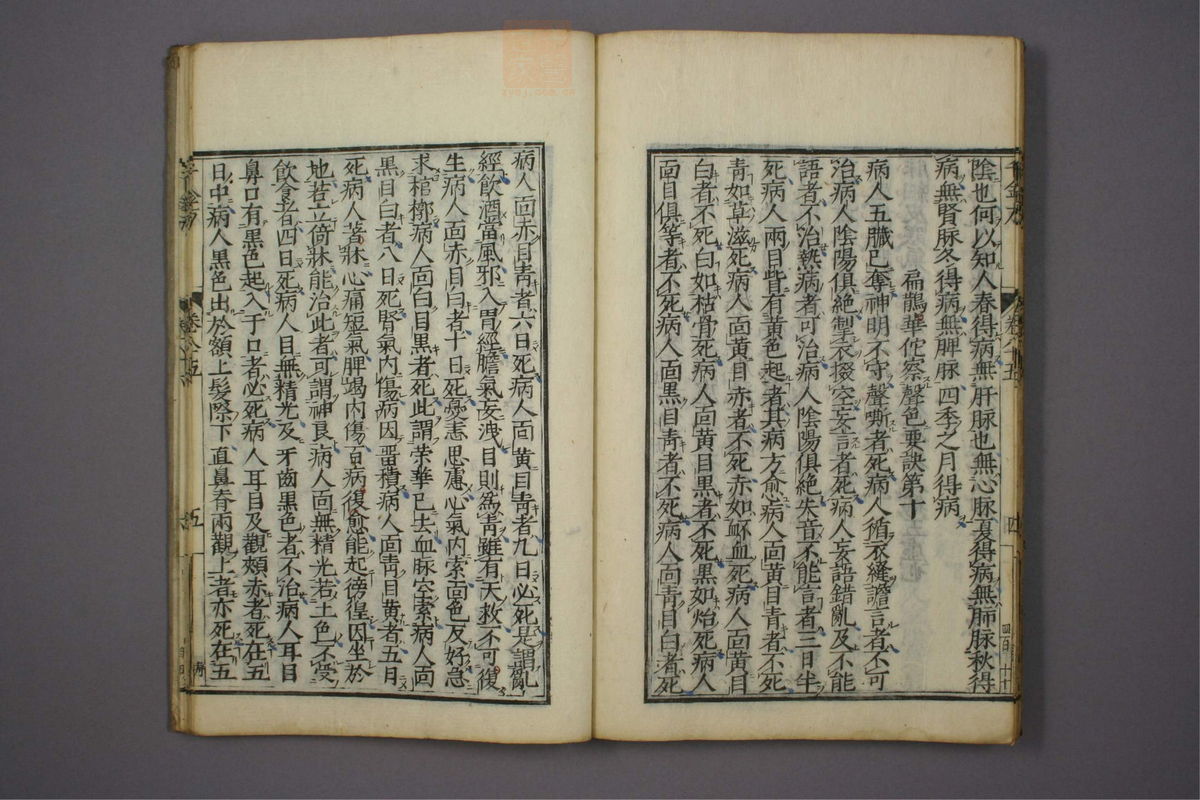 陰也何以知人春得病無肝脉也無心脉夏得病無肺脉秋得
病無腎脉冬得病無脾脉四季之月得病
扁鵲華佗察聲色要訣第十
病人五臟已奪神明不守聲嘶者死病人循衣縫譫言者不可
治病人陰陽俱絕掣衣掇空妄言者死病人妄語錯亂及不能
語者不治熱病者可治病人陰陽俱絕失音不能言者三日半
死病人兩目眥有黃色起者其病方愈病人面黃目青者不死
青如草滋死病人面黃目赤者不死赤如衃血死病人面黃目
白者不死白如枯骨死病人面黃目黑者不死黑如炲死病人
面目俱等者不死病人面黑目青者不死病人面青目白者死
千金方
卷八十五
四
病人面赤目青者六日死病人面黃目青者九日必死是謂亂
經飲酒當風邪入胃經膽氣妄洩目則爲青雖有天救不可復
生病人面赤目白者十日死憂恚思慮心氣內索面色反好急
求棺槨病人面白目黑者死此謂榮華已去血脉空索病人面
黑目白者八日死腎氣內傷病因畱積病人面青目黃者五日
死病人著牀心痛短氣脾竭內傷百病復愈能起徬徨因坐於
地若立倚牀能治此者可謂神良病人面無精光若土色不受
飲食者四日死病人目無精光及牙齒黑色者不治病人耳目
鼻口有黑色起入于口者必死病人耳目及觀頰赤者死在五
日中病人黑色出於額上髮際下直鼻脊兩觀上者亦死在五
千金方
五